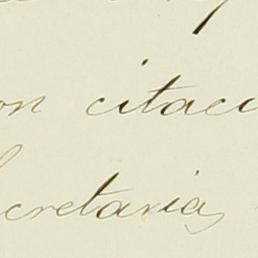 on citaci
ecretaria,